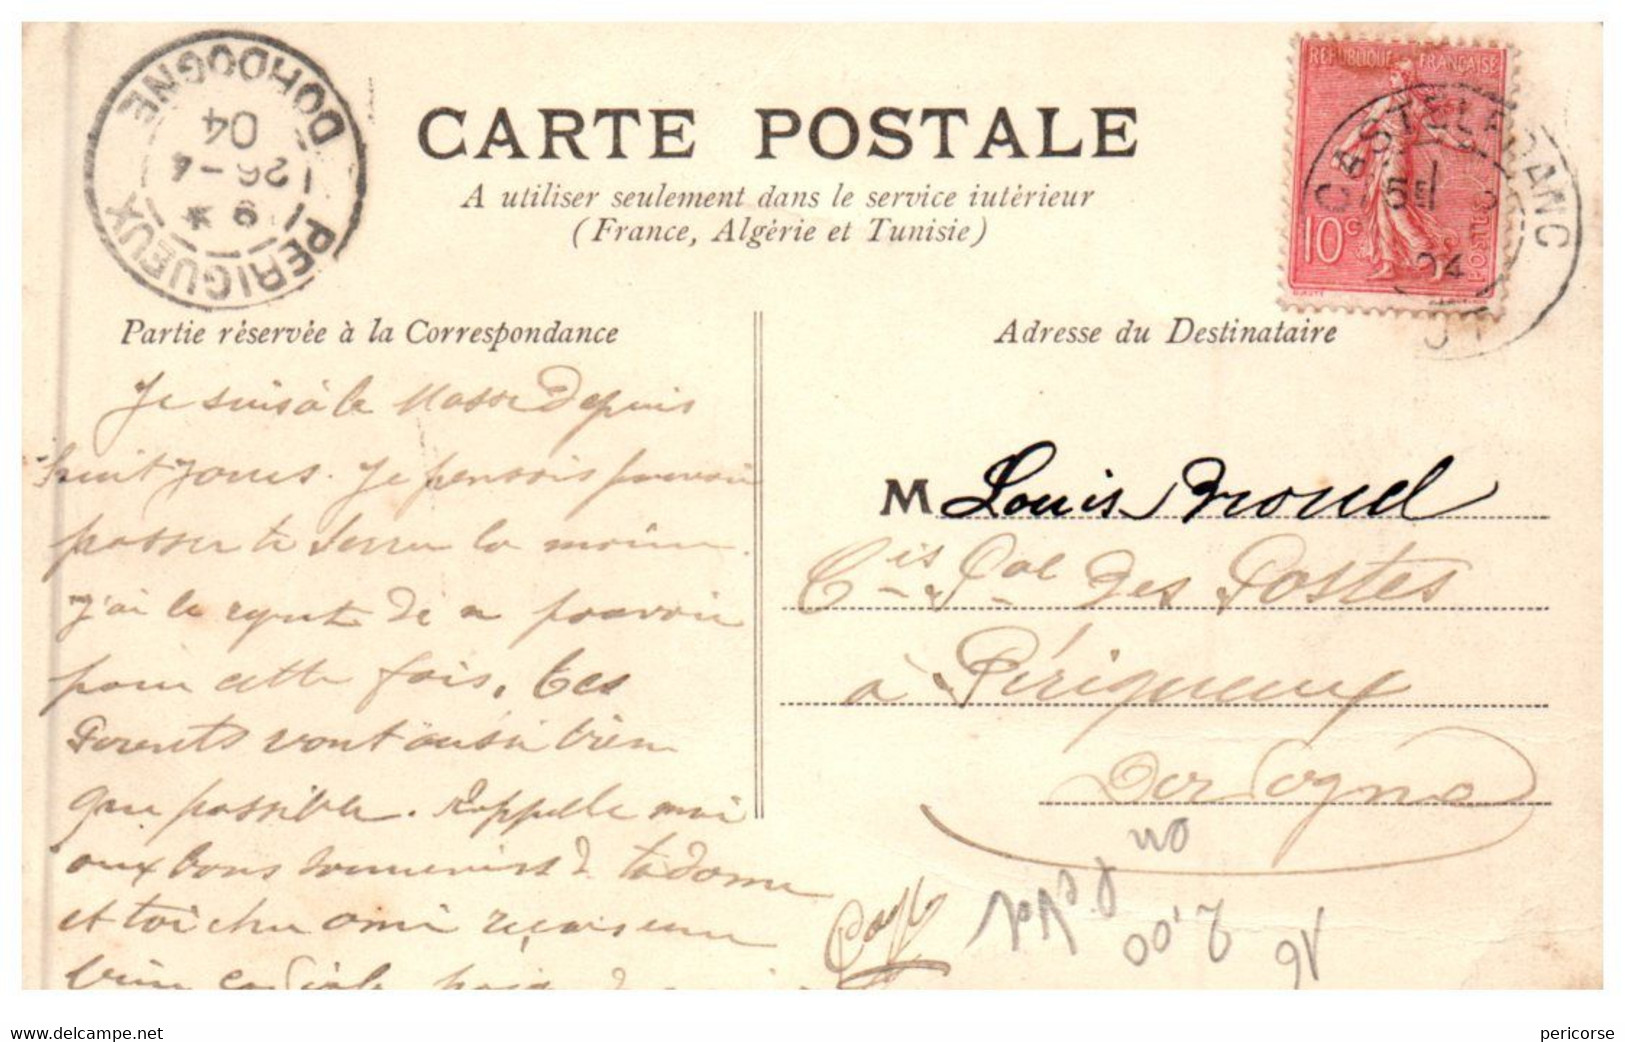 PERIGUEUX
9 *
26 - 4
04
DORDOGNE
CARTE POSTALE
A utiliser seulement dans le service intérieur
(France, Algérie et Tunisie)
REPUBLIQUE FRANÇAISE
10c
POSTES
CASTELFRANC
04
LOT
Partie réservée à la Correspondance
Adresse du Destinataire
Je suis à la Masse Depuis
huit jours. Je pensois pouvoir
passer te serrer la moin
j'ai le regret de n pouvoir
pour cette fois. tes
Parents vont aussi bien
que possible. Rappelle moi
aux bons souvenirs d ta dame
et toi cher ami reçois une
bien cordiale poignée
M Louis
Cis Pal des Postes
à Périgueux
Dordogne
2,00
16
www.delcampe.net
pericorse